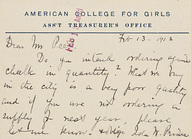 AMERICAN COLLEGE FOR GIRLS
ASS'T TREASURER'S OFFICE
Feb 13 - 1912
Dear Mr
Do you intend ordering any
chalk in quantity? That we buy
in the city is a very poor quality
and if you are not ordering a
supply of next year, please
let me know. college Ida